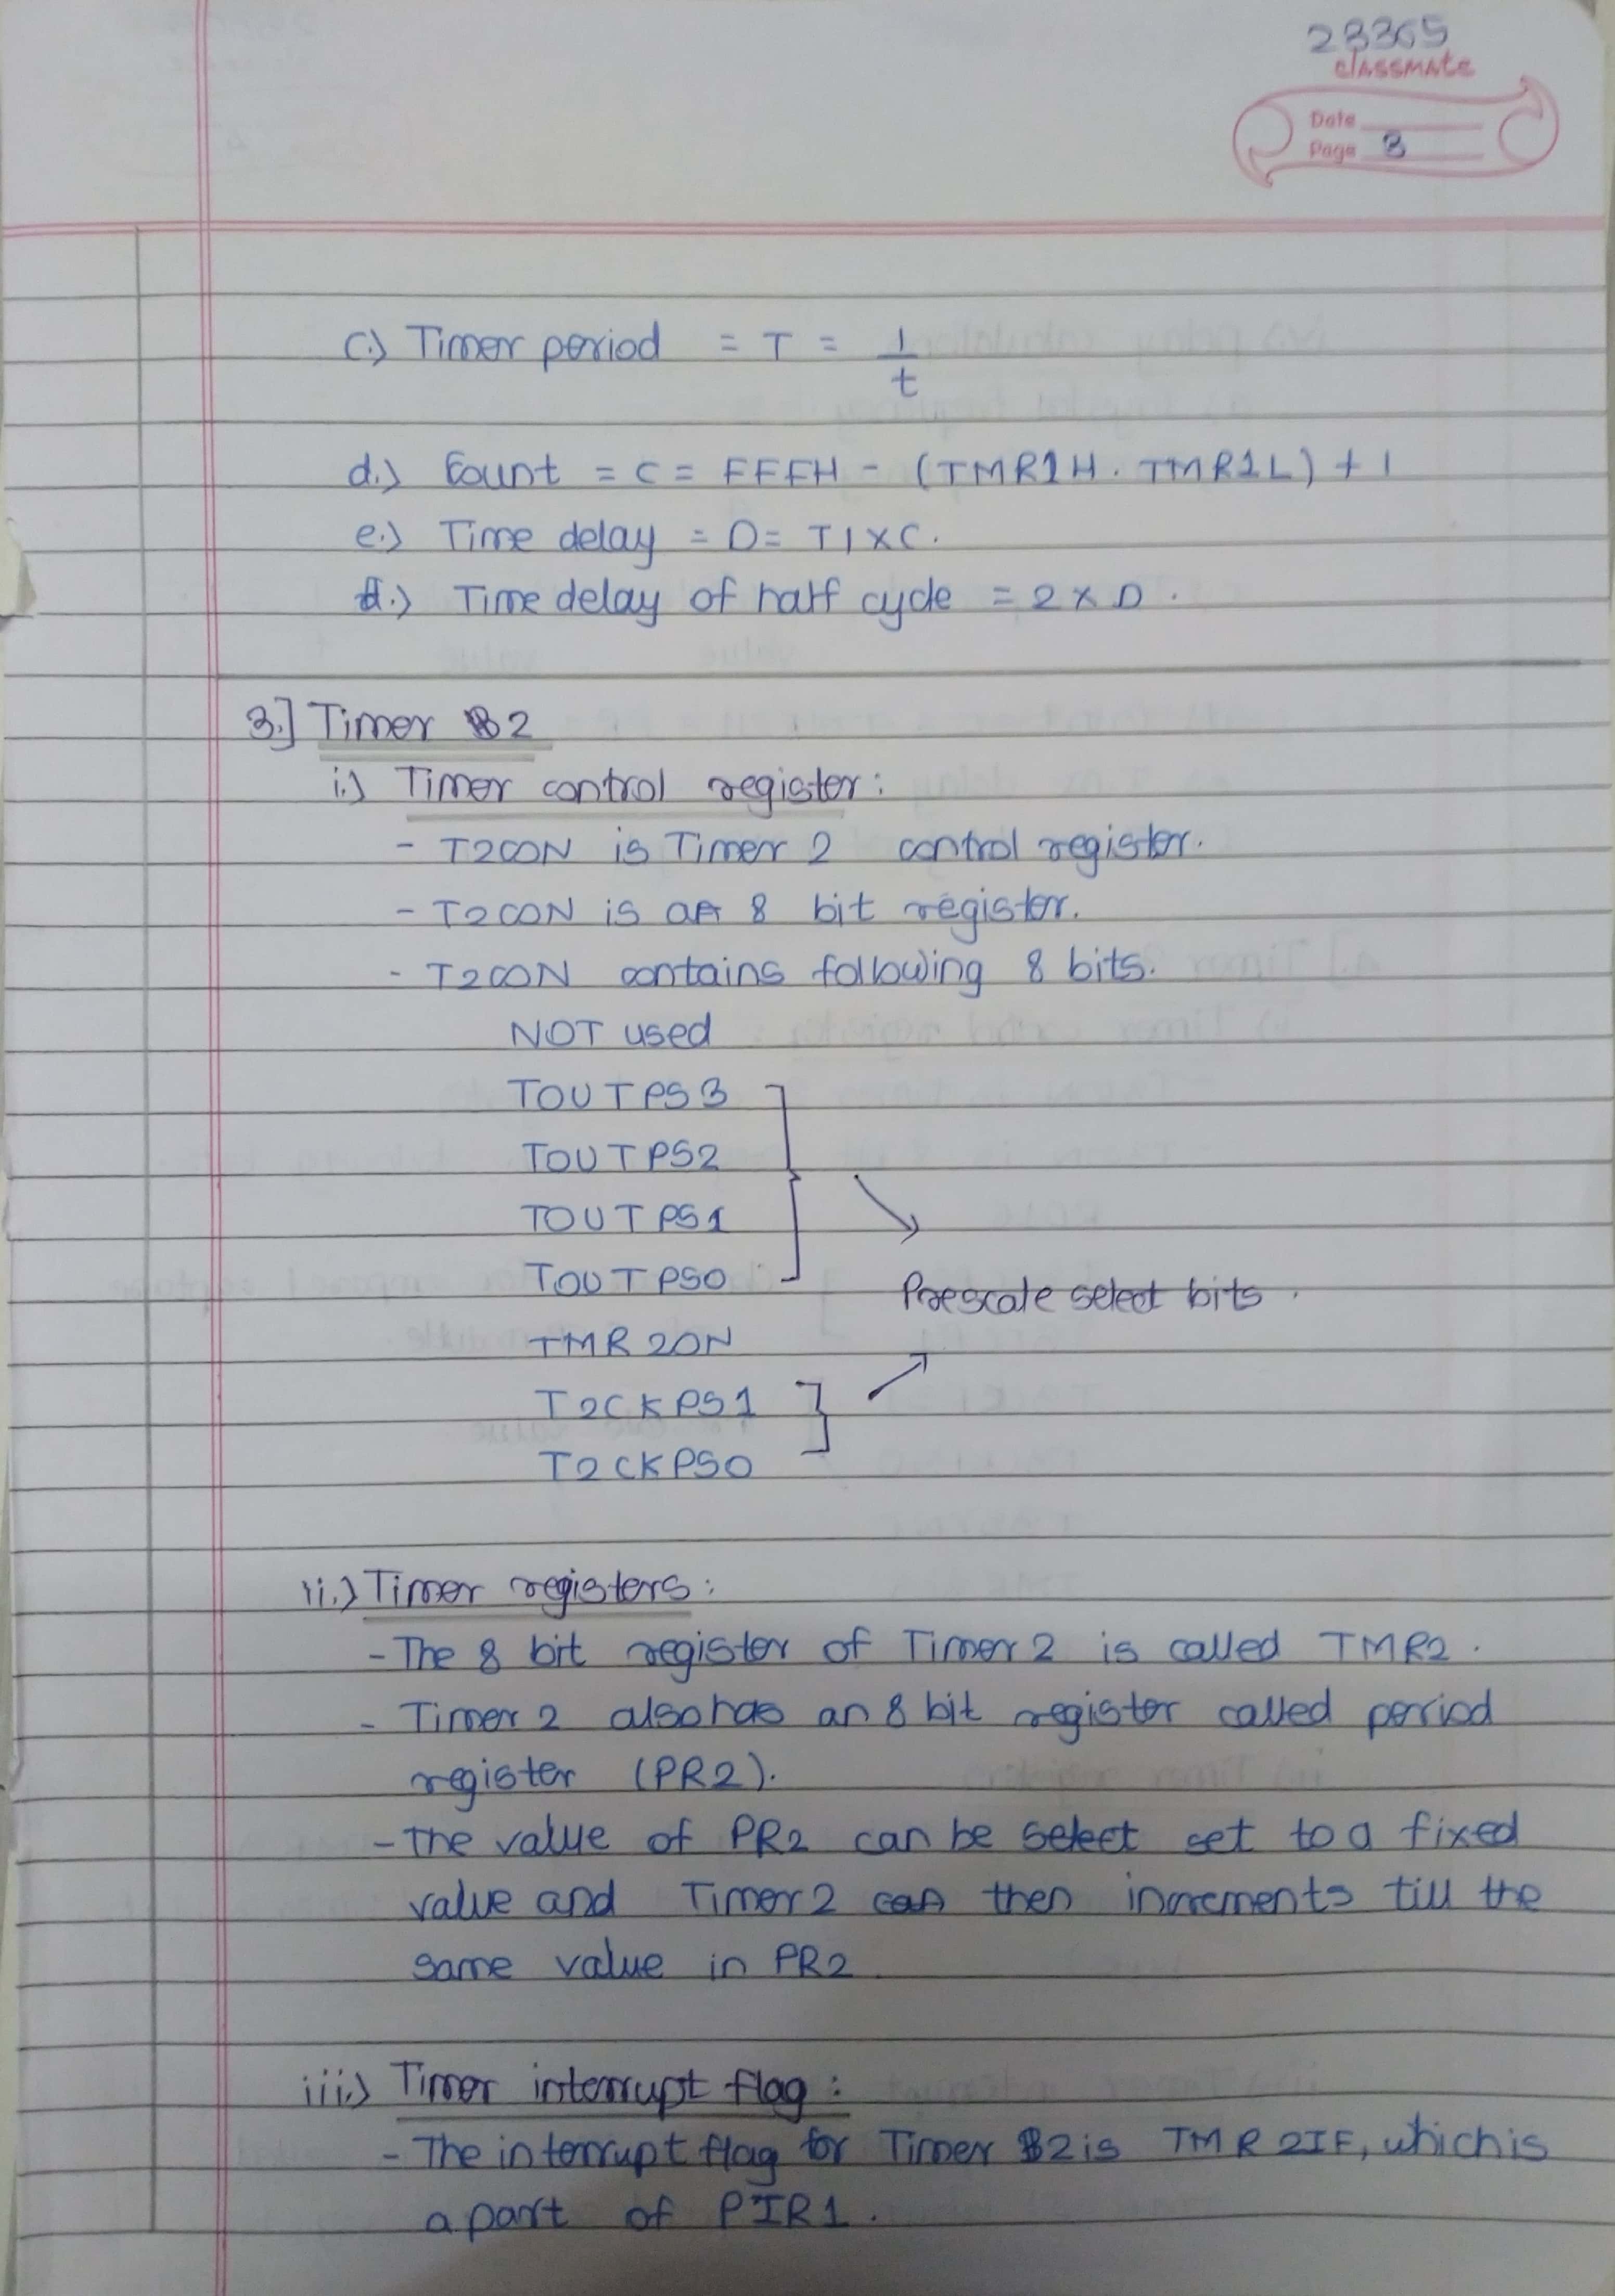 28365
classmate
Date
Page 3
c.) Timer period = T = 1/t
d.) Count = C = FFFH - (TMR1H. TMR1L) + 1
e.) Time delay = D = T1 x C.
f.) Time delay of half cycle = 2 x D.
3.] Timer 2
i.) Timer control register:
- T2CON is Timer 2 control register.
- T2CON is a 8 bit register.
- T2CON contains following 8 bits.
NOT used
TOUTPS3
TOUTPS2
TOUTPS1
TOUTPS0
Prescale select bits.
TMR2ON
T2CKPS1
T2CKPS0
ii.) Timer registers:
- The 8 bit register of Timer 2 is called TMR2.
- Timer 2 also has an 8 bit register called period
register (PR2).
- The value of PR2 can be select set to a fixed
value and Timer 2 then increments till the
same value in PR2
iii.) Timer interrupt flag:
- The interrupt flag for Timer 2 is TMR2IF, which is
a part of PIR1.